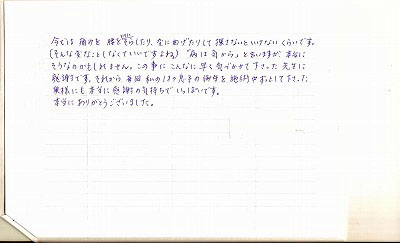 今では 痛みを 腰をそらしたり、左に曲げたりして 探さないといけないくらいです。
(そんな変なことしなくていいですよね) "病は気から"と言いますが、本当に
そうなのかもしれません。この事に こんなに早く気づかせて下さった 先生に
感謝です。それから 毎回 私の1才息子の御守を施術中おして下さった
奥様にも本当に感謝の気持ちでいっぱいです。
本当にありがとうございました。